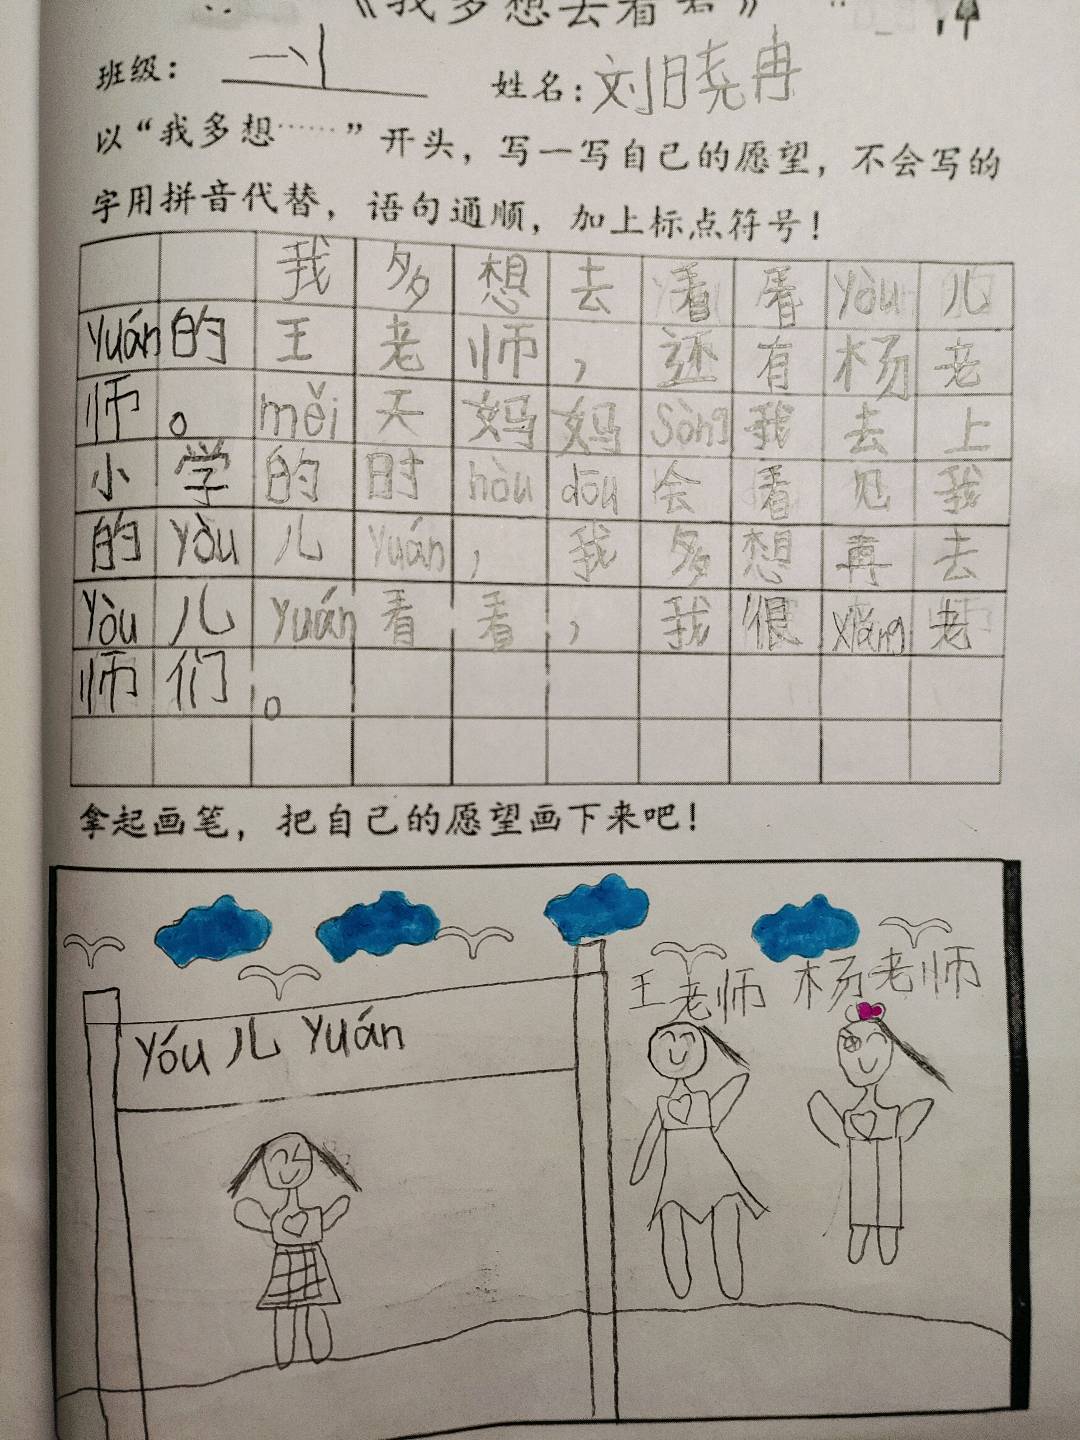 《我多想去看看》
班级：一4
姓名：刘晓冉
以“我多想……”开头，写一写自己的愿望，不会写的
字用拼音代替，语句通顺，加上标点符号！
我多想去看看yòu儿
yuán的王老师，还有杨老
师。měi天妈妈sòng我去上
小学的时hòu dōu会看见我
的yòu儿yuán，我多想再去
yòu儿yuán看看，我很xiǎng老
师们。
拿起画笔，把自己的愿望画下来吧！
王老师 杨老师
yóu儿yuán